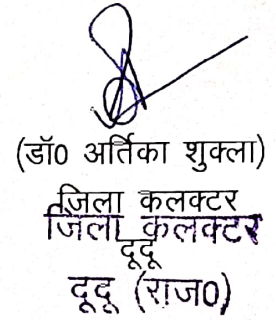 (डॉ0 अर्तिका शुक्ला)
जिला कलक्टर
जिला कलक्टर
दूदू
दूदू (राज0)